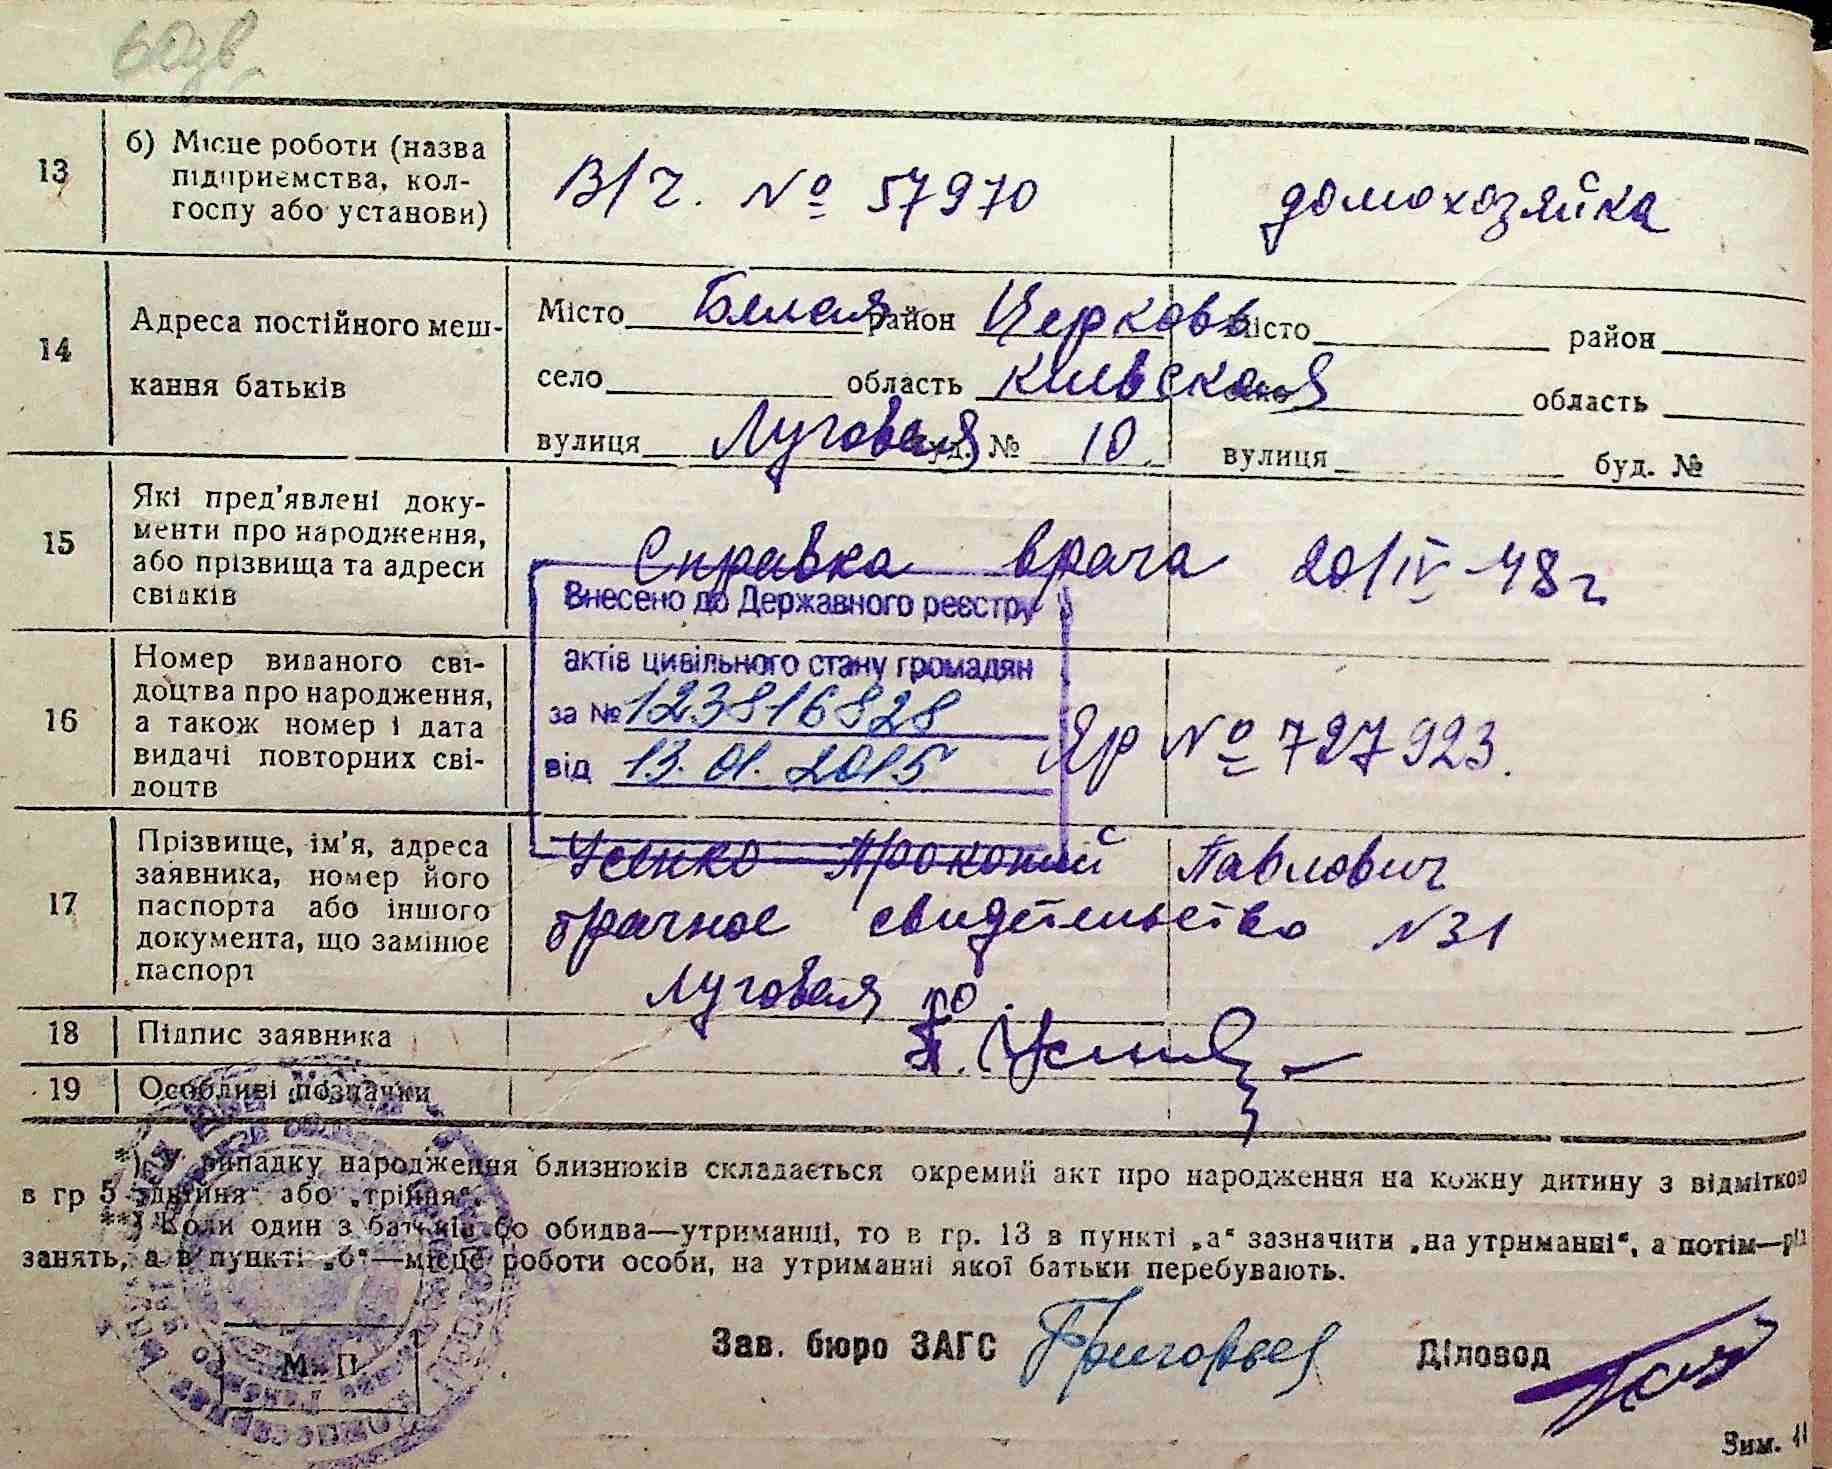 13
б) Місце роботи (назва
підприємства, кол-
госпу або установи)
В/ч. № 57970
домохозяйка
14
Адреса постійного меш-
кання батьків
Місто Белая район Церковь місто район
село область Киевская село область
вулиця Луговая буд. № 10 вулиця буд. №
15
Які пред'явлені доку-
менти про народження,
або прізвища та адреси
свідків
Справка врача 20/IV-48 г
Внесено до Державного реєстру
актів цивільного стану громадян
за № 123816828
від 13.01.2015
16
Номер виданого сві-
доцтва про народження,
а також номер і дата
видачі повторних сві-
доцтв
Яр № 727923.
17
Прізвище, ім'я, адреса
заявника, номер його
паспорта або іншого
документа, що замінює
паспорт
Усенко Прокопий Павлович
брачное свидетельство №31
Луговая 10.
18
Підпис заявника
19
Особливі позначки
*) У випадку народження близнюків складається окремий акт про народження на кожну дитину з відміткою
в гр 5 „двійня“ або „трійня“.
**) Коли один з батьків або обидва—утриманці, то в гр. 13 в пункті „а“ зазначити „на утриманні“, а потім—рід
занять, а в пункті „б“—місце роботи особи, на утриманні якої батьки перебувають.
М. П.
Зав. бюро ЗАГС Григорьев
Діловод
Зим. 11